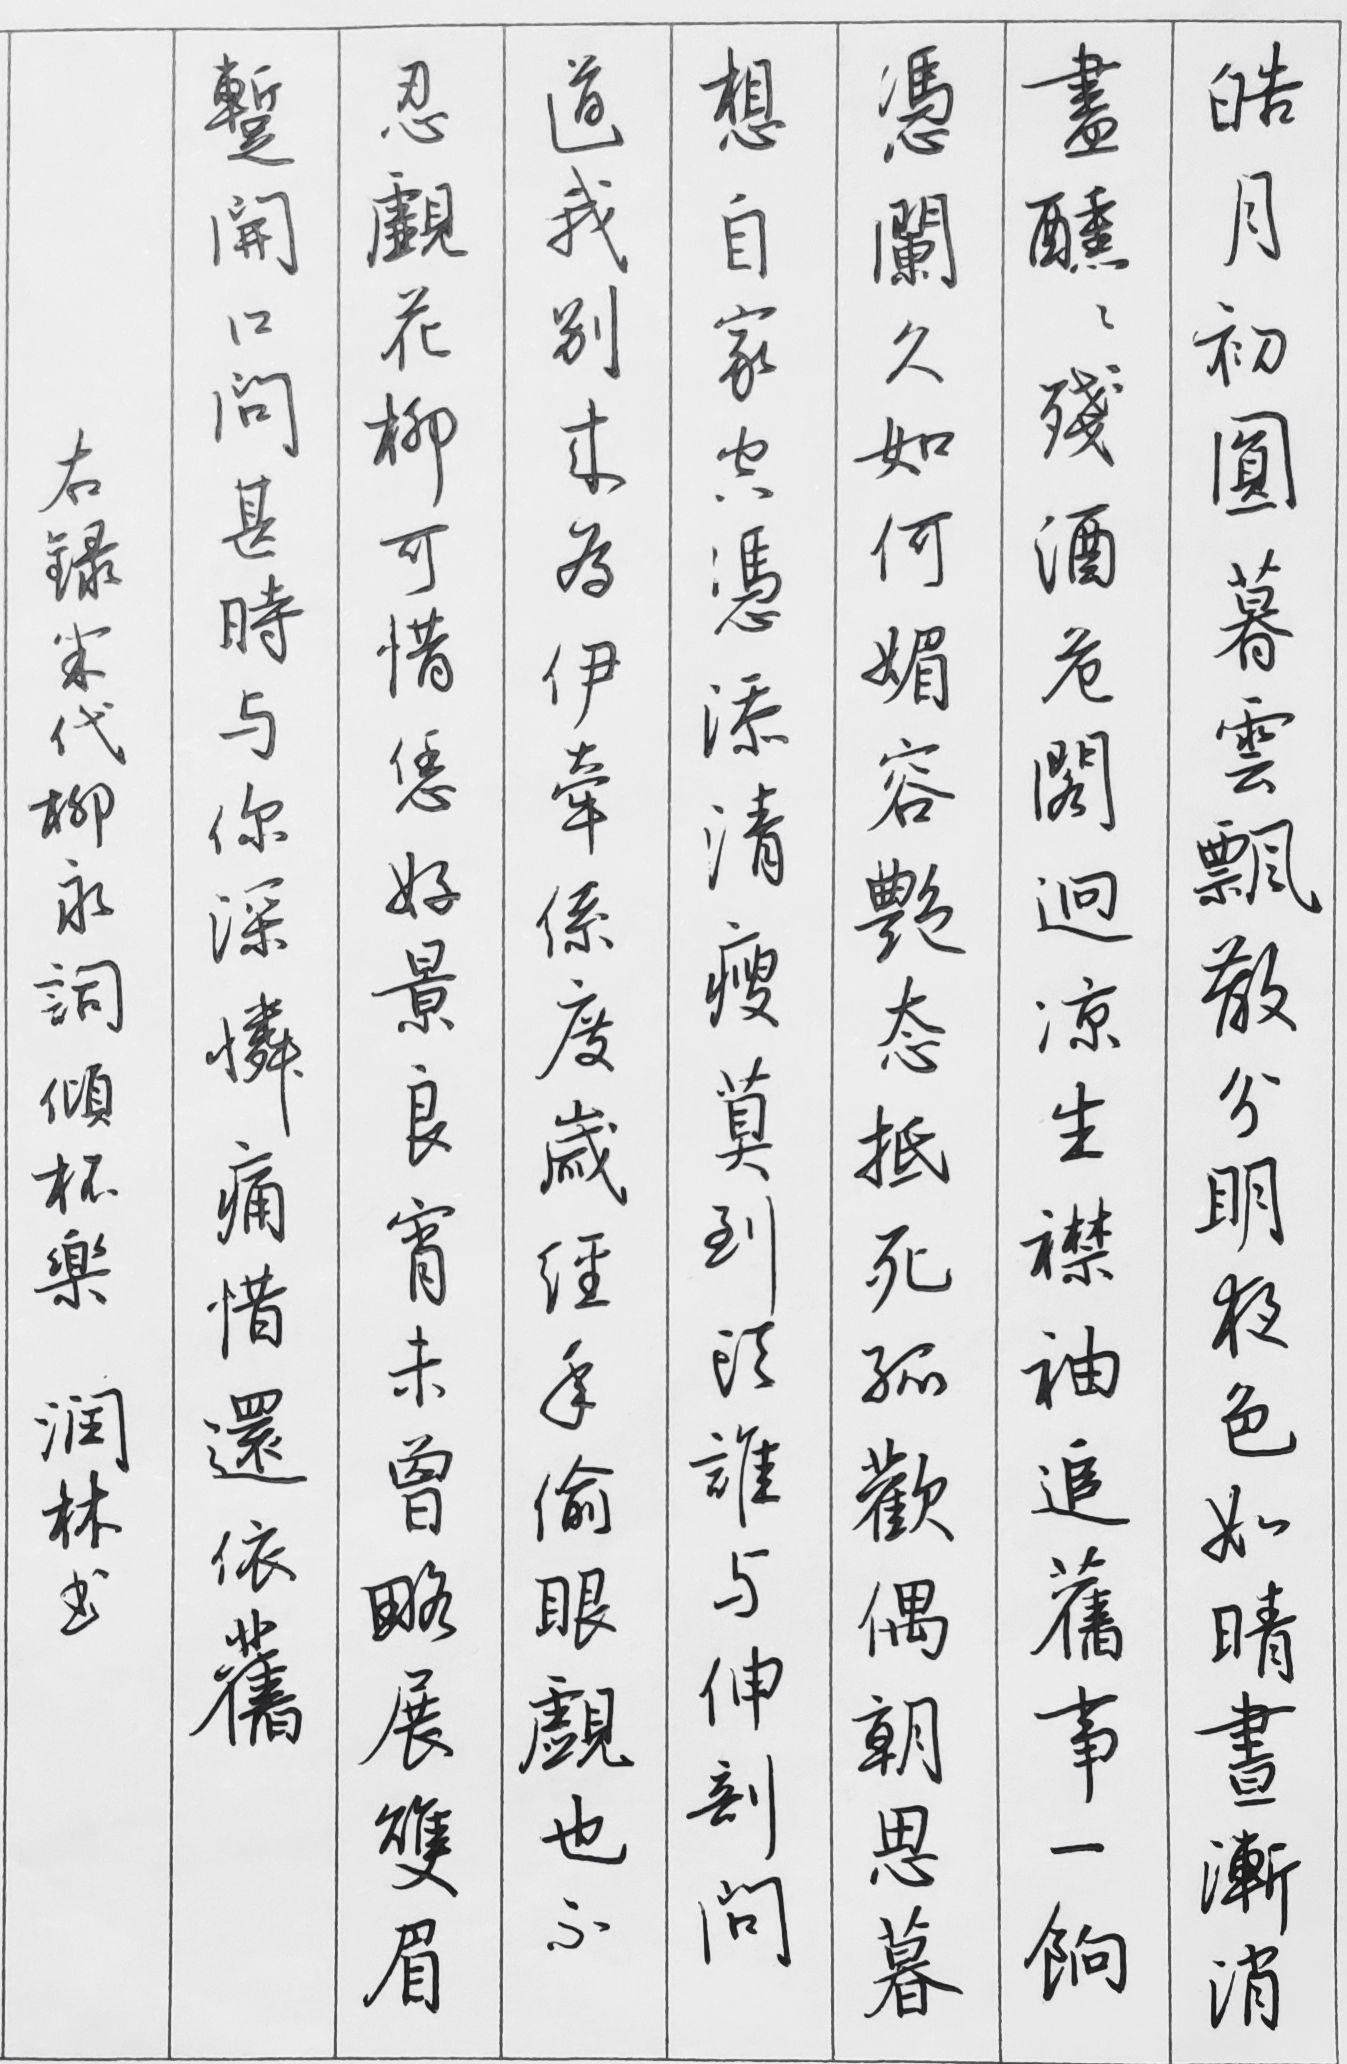 皓月初圓暮雲飄散分明夜色如晴晝漸消
盡醺〻殘酒危閣迥凉生襟袖追舊事一餉
憑闌久如何媚容艷态抵死孤歡偶朝思暮
想自家空憑添清瘦莫到頭誰与伸剖問
道我别来為伊牽係度歲经年偷眼覷也不
忍覷花柳可惜恁好景良宵未曾略展雙眉
蹔開口問甚時与你深憐痛惜還依舊
右録宋代柳永詞傾杯樂 润林书